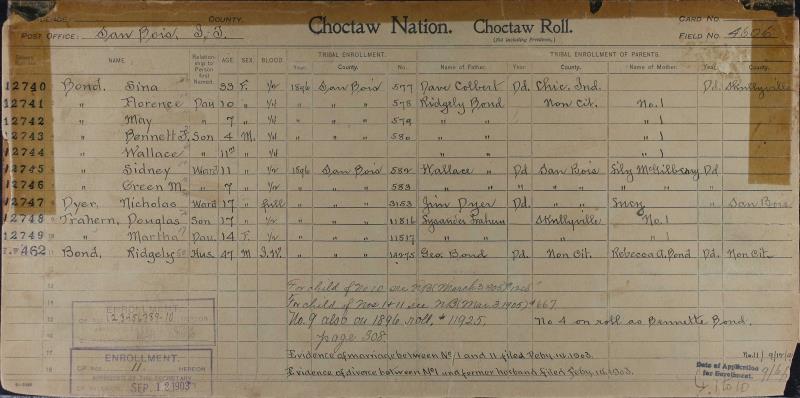 COUNTY.
Choctaw Nation. Choctaw Roll.
CARD NO.
POST OFFICE: San Bois, I. T.
(Not Including Freedmen.)
FIELD NO. 4606
NAME Relationship to Person first Named. AGE SEX. BLOOD TRIBAL ENROLLMENT. Year. County. No. TRIBAL ENROLLMENT OF PARENTS. Name of Father. Year. County. Name of Mother. Year. County.
12740 Bond, Sina 33 F. 1/2 1896 San Bois 577 Dave Colbert Dd. Chic. Ind. Dd. Skullyville
12741 " Florence Dau 10 " 1/4 " " " 578 Ridgely Bond Non Cit. No. 1
12742 " May " 7 " 1/4 " " " 579 " " " 1
12743 " Bennett F. Son 4 M. 1/4 " " " 580 " " " 1
12744 " Wallace " 11m " 1/4 " " " 1
12745 " Sidney Ward 11 " 1/2 1896 San Bois 582 Wallace " Dd San Bois Dd
12746 " Green M. " 7 " 1/2 " " " 583 " " " " " " "
12747 Dyer, Nicholas Ward 17 " full " " " 3153 Jim Dyer Dd. " " Sucy " San Bois
12748 Trahern, Douglas Son 17 " 1/2 " " " 11816 Lysander Trahern Skullyville No. 1
12749 " Martha Dau. 14 F. " " " 11517 " " " 1
I.W. 462 Bond, Ridgely Hus. 47 M I.W. " " " 14275 Geo. Bond Dd. Non Cit. Rebecca A. Bond Dd. Non Cit.
For child of No 10 see NB (March 3 1905)
For child of Nos 1 + 11 see NB (Mar 3 1905) #667
No. 9 also on 1896 roll, # 11925, page 508
No 4 on roll as Bennette Bond.
ENROLLMENT
1-2-3-4-5-6-7-8-9-10
Evidence of marriage between No 1 and 11 filed Feby. 14. 1903.
Evidence of divorce between No 1 and former husband filed Feby. 14. 1903.
ENROLLMENT.
OF NOS. 11 HEREON
APPROVED BY THE SECRETARY
OF INTERIOR SEP 12 1903
Date of Application
for Enrollment.
1 to 10